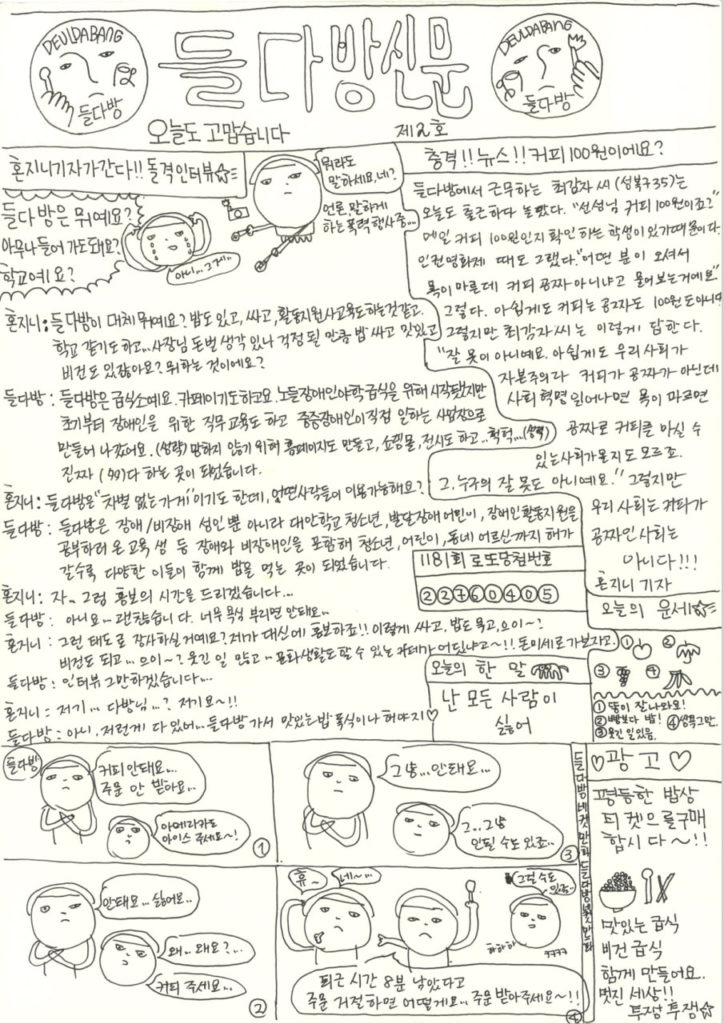 DEULDABANG
들다방
들다방신문
DEULDABANG
들다방
오늘도 고맙습니다
제2호
혼지니기자가간다!! 돌격인터뷰☆
뭐라도
말하세요, 네?
언론, 말하게
하는폭력행사중...
들다방은 뭐예요?
아무나들어가도돼요?
학교예요?
아니...그게..
혼지니: 들다방이 대체 뭐예요? 밥도있고, 싸고, 활동지원사교육도하는것같고.
학교 같기도하고...사장님 돈벌 생각 있나 걱정될 만큼 밥 싸고 맛있고
비건도 있잖아요? 뭐하는 것이에요?
들다방: 들다방은 급식소예요. 카페이기도하고요. 노들장애인야학급식을 위해 시작됐지만
초기부터 장애인을 위한 직무교육도 하고 중증장애인이직접 일하는 사업장으로
만들어 나갔어요. (생략) 망하지 않기위해 홈페이지도 만들고, 쇼핑몰, 전시도하고...헉헉...(생략)
진짜 (뭐)다 하는 곳이 되었습니다.
혼지니: 들다방은 "차별 없는가게"이기도 한데, 어떤사람들이 이용가능해요?
들다방: 들다방은 장애/비장애 성인 뿐 아니라 대안학교 청소년, 발달장애 어린이, 장애인활동지원을
공부하러 온 교육 생 등 장애와 비장애인을 포함해 청소년, 어린이, 동네 어르신까지 해가
갈수록 다양한 이들이 함께 밥을 먹는 곳이 되었습니다.
혼지니: 자.. 그럼 홍보의 시간을 드리겠습니다...
들다방: 아니요.. 괜찮습니다. 너무 욕심 부리면 안돼요..
혼지니: 그런 태도로 장사하실거예요? 제가 대신에 홍보하죠!! 이렇게 싸고, 밥도 먹고, 으이~?
비건도 되고... 으이~? 웃긴 일 많고.. 문화생활도할 수 있는 카페가 어딨냐고~!! 돈미세로가보자고.
들다방: 인터뷰 그만하겠습니다...
혼지니: 저기... 다방님...? 저기요~!!
들다방: 아니, 저런게 다 있어... 들다방 가서 맛있는밥 폭식이나 해야지♡
충격!! 뉴스!! 커피100원이에요?
들다방에서 근무하는 최감자 씨 (성북구35)는
오늘도 출근하다 놀랐다. "선생님 커피 100원이죠?"
매일 커피 100원인지 확인 하는 학생이있기때문이다.
인권영화제 때도 그랬다. "어떤 분이 오셔서
목이마른데 커피 공짜 아니냐고 물어보는거예요"
그렇다. 아쉽게도 커피는 공짜도 100원도아니다
그렇지만 최감자씨는 이렇게 답한다.
"잘 못이 아니예요. 아쉽게도 우리사회가
자본주의다 커피가 공짜가 아닌데
사회혁명 일어나면 목이 마르면
공짜로 커피를 마실 수
있는사회가올지도 모르죠.
그, 누구의 잘 못도 아니예요." 그렇지만
우리 사회는 커피가
공짜인 사회는
아니다!!!
혼지니 기자
1181회 로또당첨번호
②②⑦⑥⓪④⓪⑤
오늘의 한 말
난 모든 사람이
싫어
오늘의 운세☆
① ②
③ ④
①똥이 잘나와요!
②빵보다 밥!
③웃긴 일있음.
④생북그만.
들다방
커피 안돼요...
주문 안 받아요..
아메리카노
아이스 주세요~!
①
안돼요... 싫어요..
왜.. 왜요?...
커피 주세요...
②
그냥...안돼요...
그..그냥
안될 수도 있죠..
③
휴~
네~...
그럴수도
있죠..
하하하
ㅋㅋㅋㅋ
퇴근 시간 8분 남았다고
주문 거절하면 어떻게요... 주문 받아주세요~!!
④
들다방네컷만화 들다방네컷만화
♡광고♡
평등한 밥상
티켓으를구매
합시다~!!
맛있는 급식
비건 급식
함께 만들어요..
멋진 세상!!
투쟁 투쟁☆